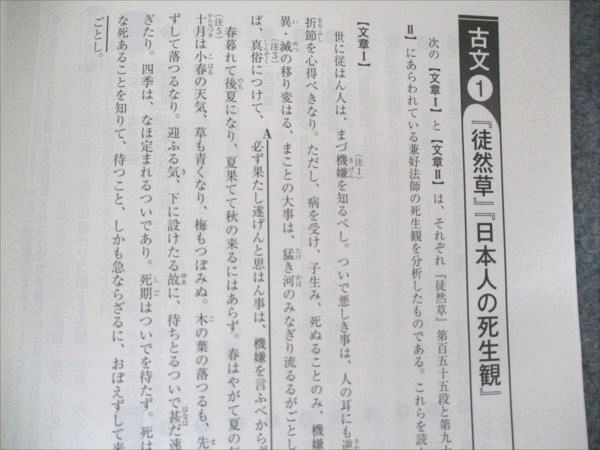 古文 1 『徒然草』『日本人の死生観』
次の【文章Ⅰ】と【文章Ⅱ】は、それぞれ『徒然草』第百五十五段と第九十
Ⅱ】にあらわれている兼好法師の死生観を分析したものである。これらを読
【文章Ⅰ】
世に従はん人は、まづ機嫌を知るべし。ついで悪しき事は、人の耳にも逆
折節を心得べきなり。ただし、病を受け、子生み、死ぬることのみ、機嫌
異・滅の移り変はる、まことの大事は、猛き河のみなぎり流るるがごとし
ば、真俗につけて、必ず果たし遂げんと思はん事は、機嫌を言ふべから
春暮れて後夏になり、夏果てて秋の来るにはあらず。春はやがて夏の気
十月は小春の天気、草も青くなり、梅もつぼみぬ。木の葉の落つるも、先
ずして落つるなり。迎ふる気、下に設けたる故に、待ちとるついで甚だ速
ぎたり。四季は、なほ定まれるついであり。死期はついでを待たず。死は
な死あることを知りて、待つこと、しかも急ならざるに、おぼえずして来
ごとし。
(注1)
(注3)
(注5)
A